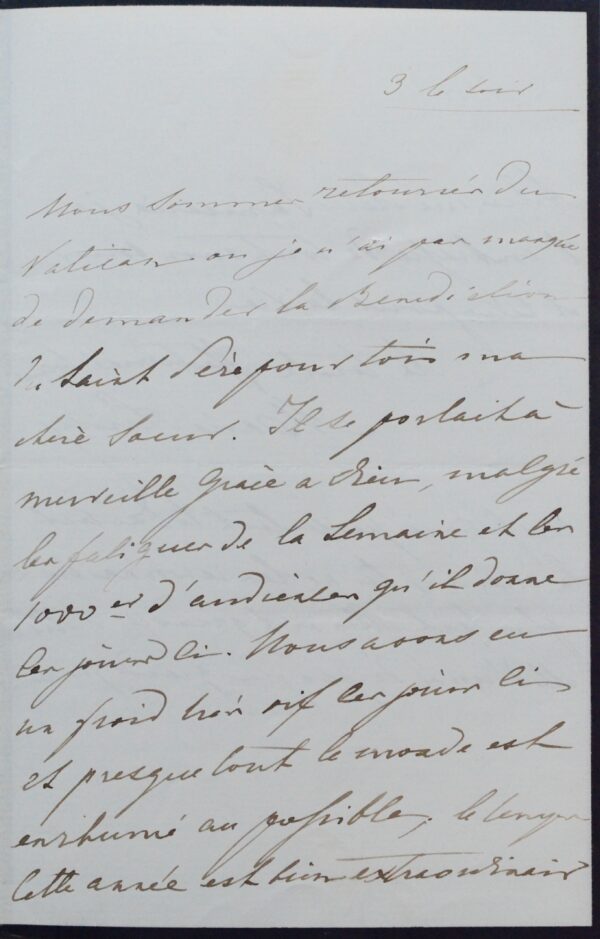 3 le soir
Nous sommes retournés du
Vatican ou je n'ai pas manqué
de demander la Benediction
du Saint Père pour tois ma
chere Soeur. Il se portait à
merveille Grace a Dieu, malgré
les fatigues de la Semaine et les
1000 es d'audiences qu'il donne
ces jours ci. Nous avons eu
un froid très vif ces jours ci
et presque tout le monde est
enrhumé au possible, le temps
cette année est bien extraordinair